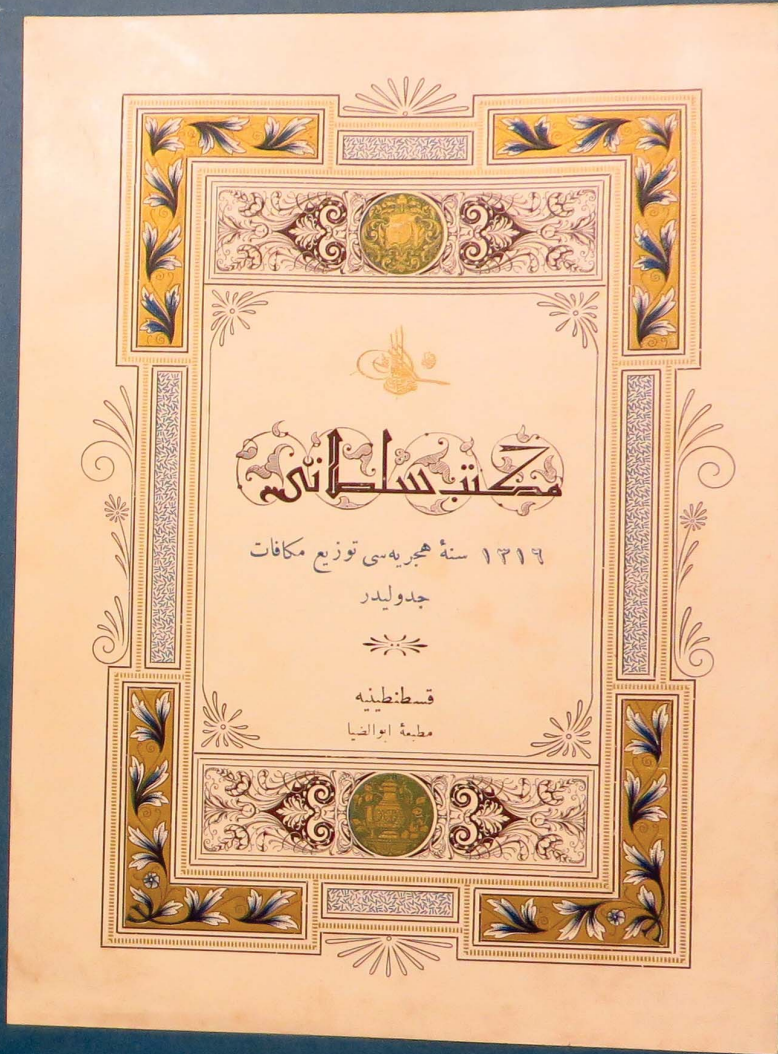 مكتب سلطانی
١٣١٦ سنهٔ هجریه‌سی توزیع مكافات
جدولیدر
قسطنطینیه
مطبعهٔ ابوالضیا